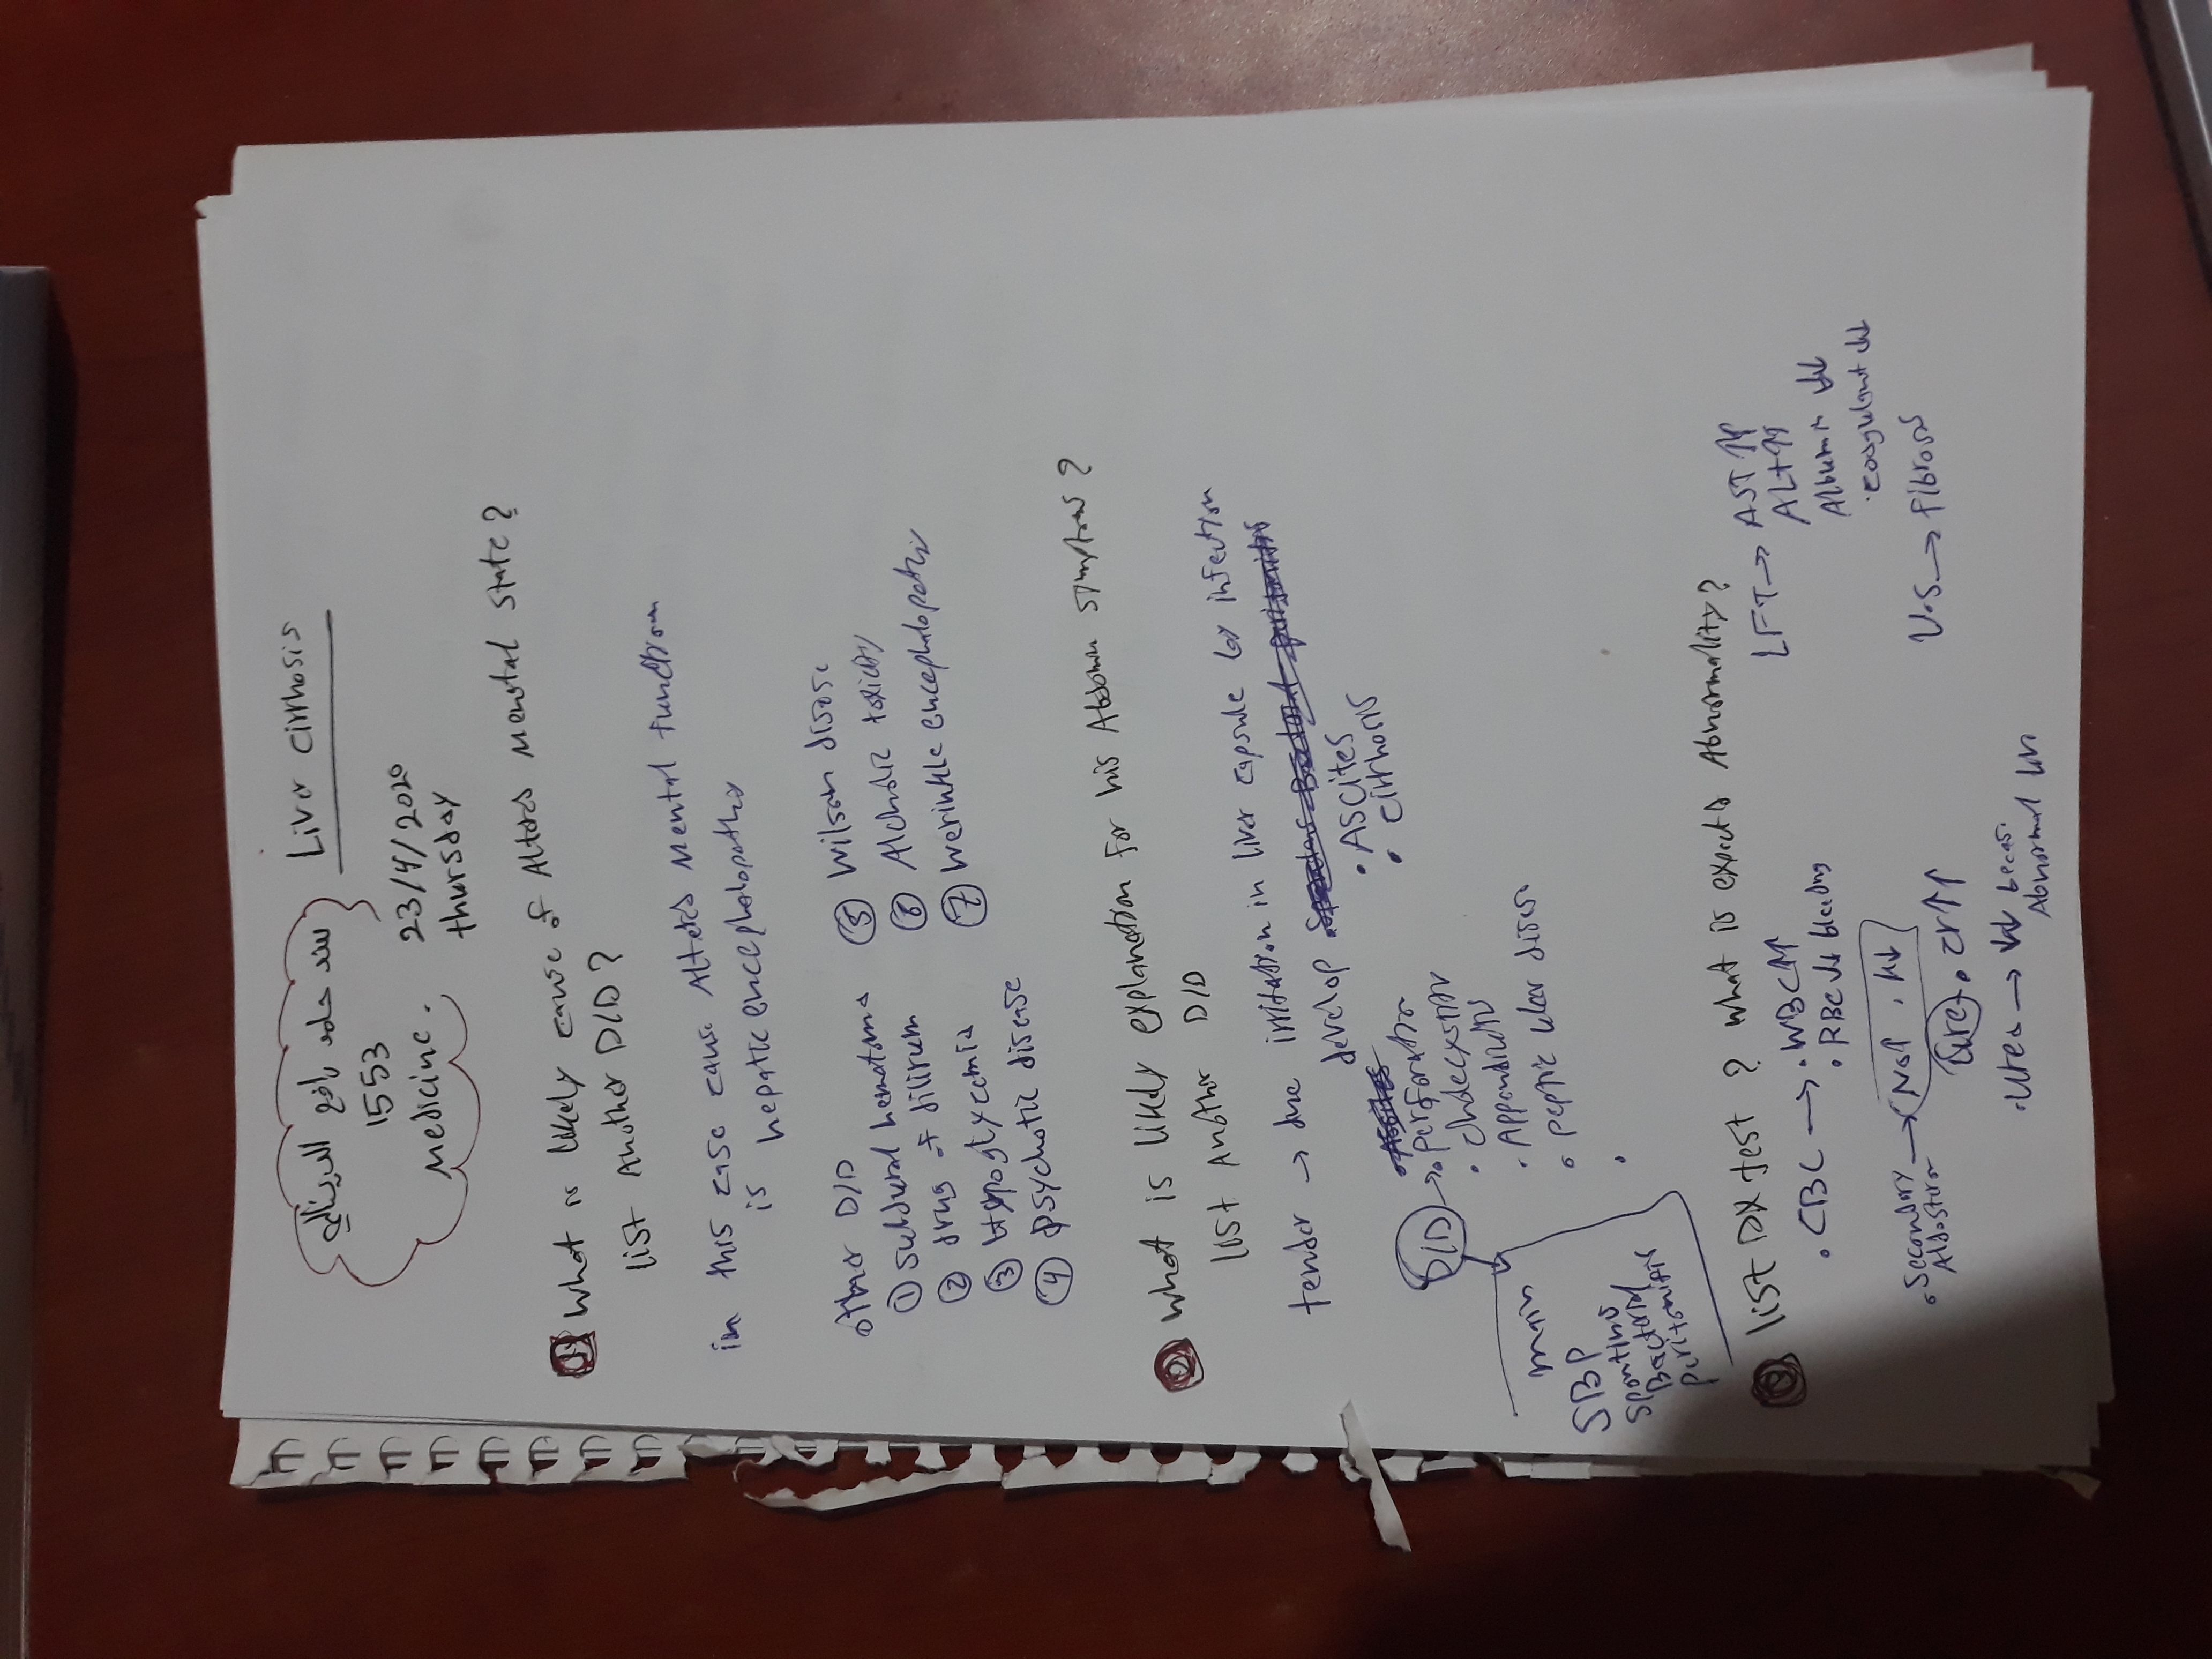 Liver cirrhosis
سند حامد رافع البرناكي
1553
Medicine.
23/4/2020
thursday
1 What is likely cause of Alterd Mental state?
list Another D/D?
in this case cause Alterd Mental function
is heptic encephalopatha
other D/D
① Subdural hematoma
② drug of dilirum
③ hypoglycemia
④ psychotic disease
⑤ Wilson disase
⑥ Alcholic toxicity
⑦ Werinkle encephalopathy
2 What is likely explanation for his Abdomn symptoms?
list Anothr D/D
tender → due irritation in liver capsule by infection
develop
• Ascites
• cirrhosis
D/D → • Perforation
• cholecystitis
• Appendicitis
• peptic ulcer diseas
main
SBP
Spontinus
Bacterial
peritonitis
3 list DX test ? what is expectd Abnormality?
• CBC → • WBC ↑↑
• RBC ↓↓ bleeding
• Secondary → Na↑ , K↓
Aldosteron
Urea • cr↑↑
• Urea → ↓↓ becas.
Abnormal liv
LFT → AST ↑↑
ALT ↑↑
Albumin ↓↓
• coagulant ↓↓
U.S → Fibrosis